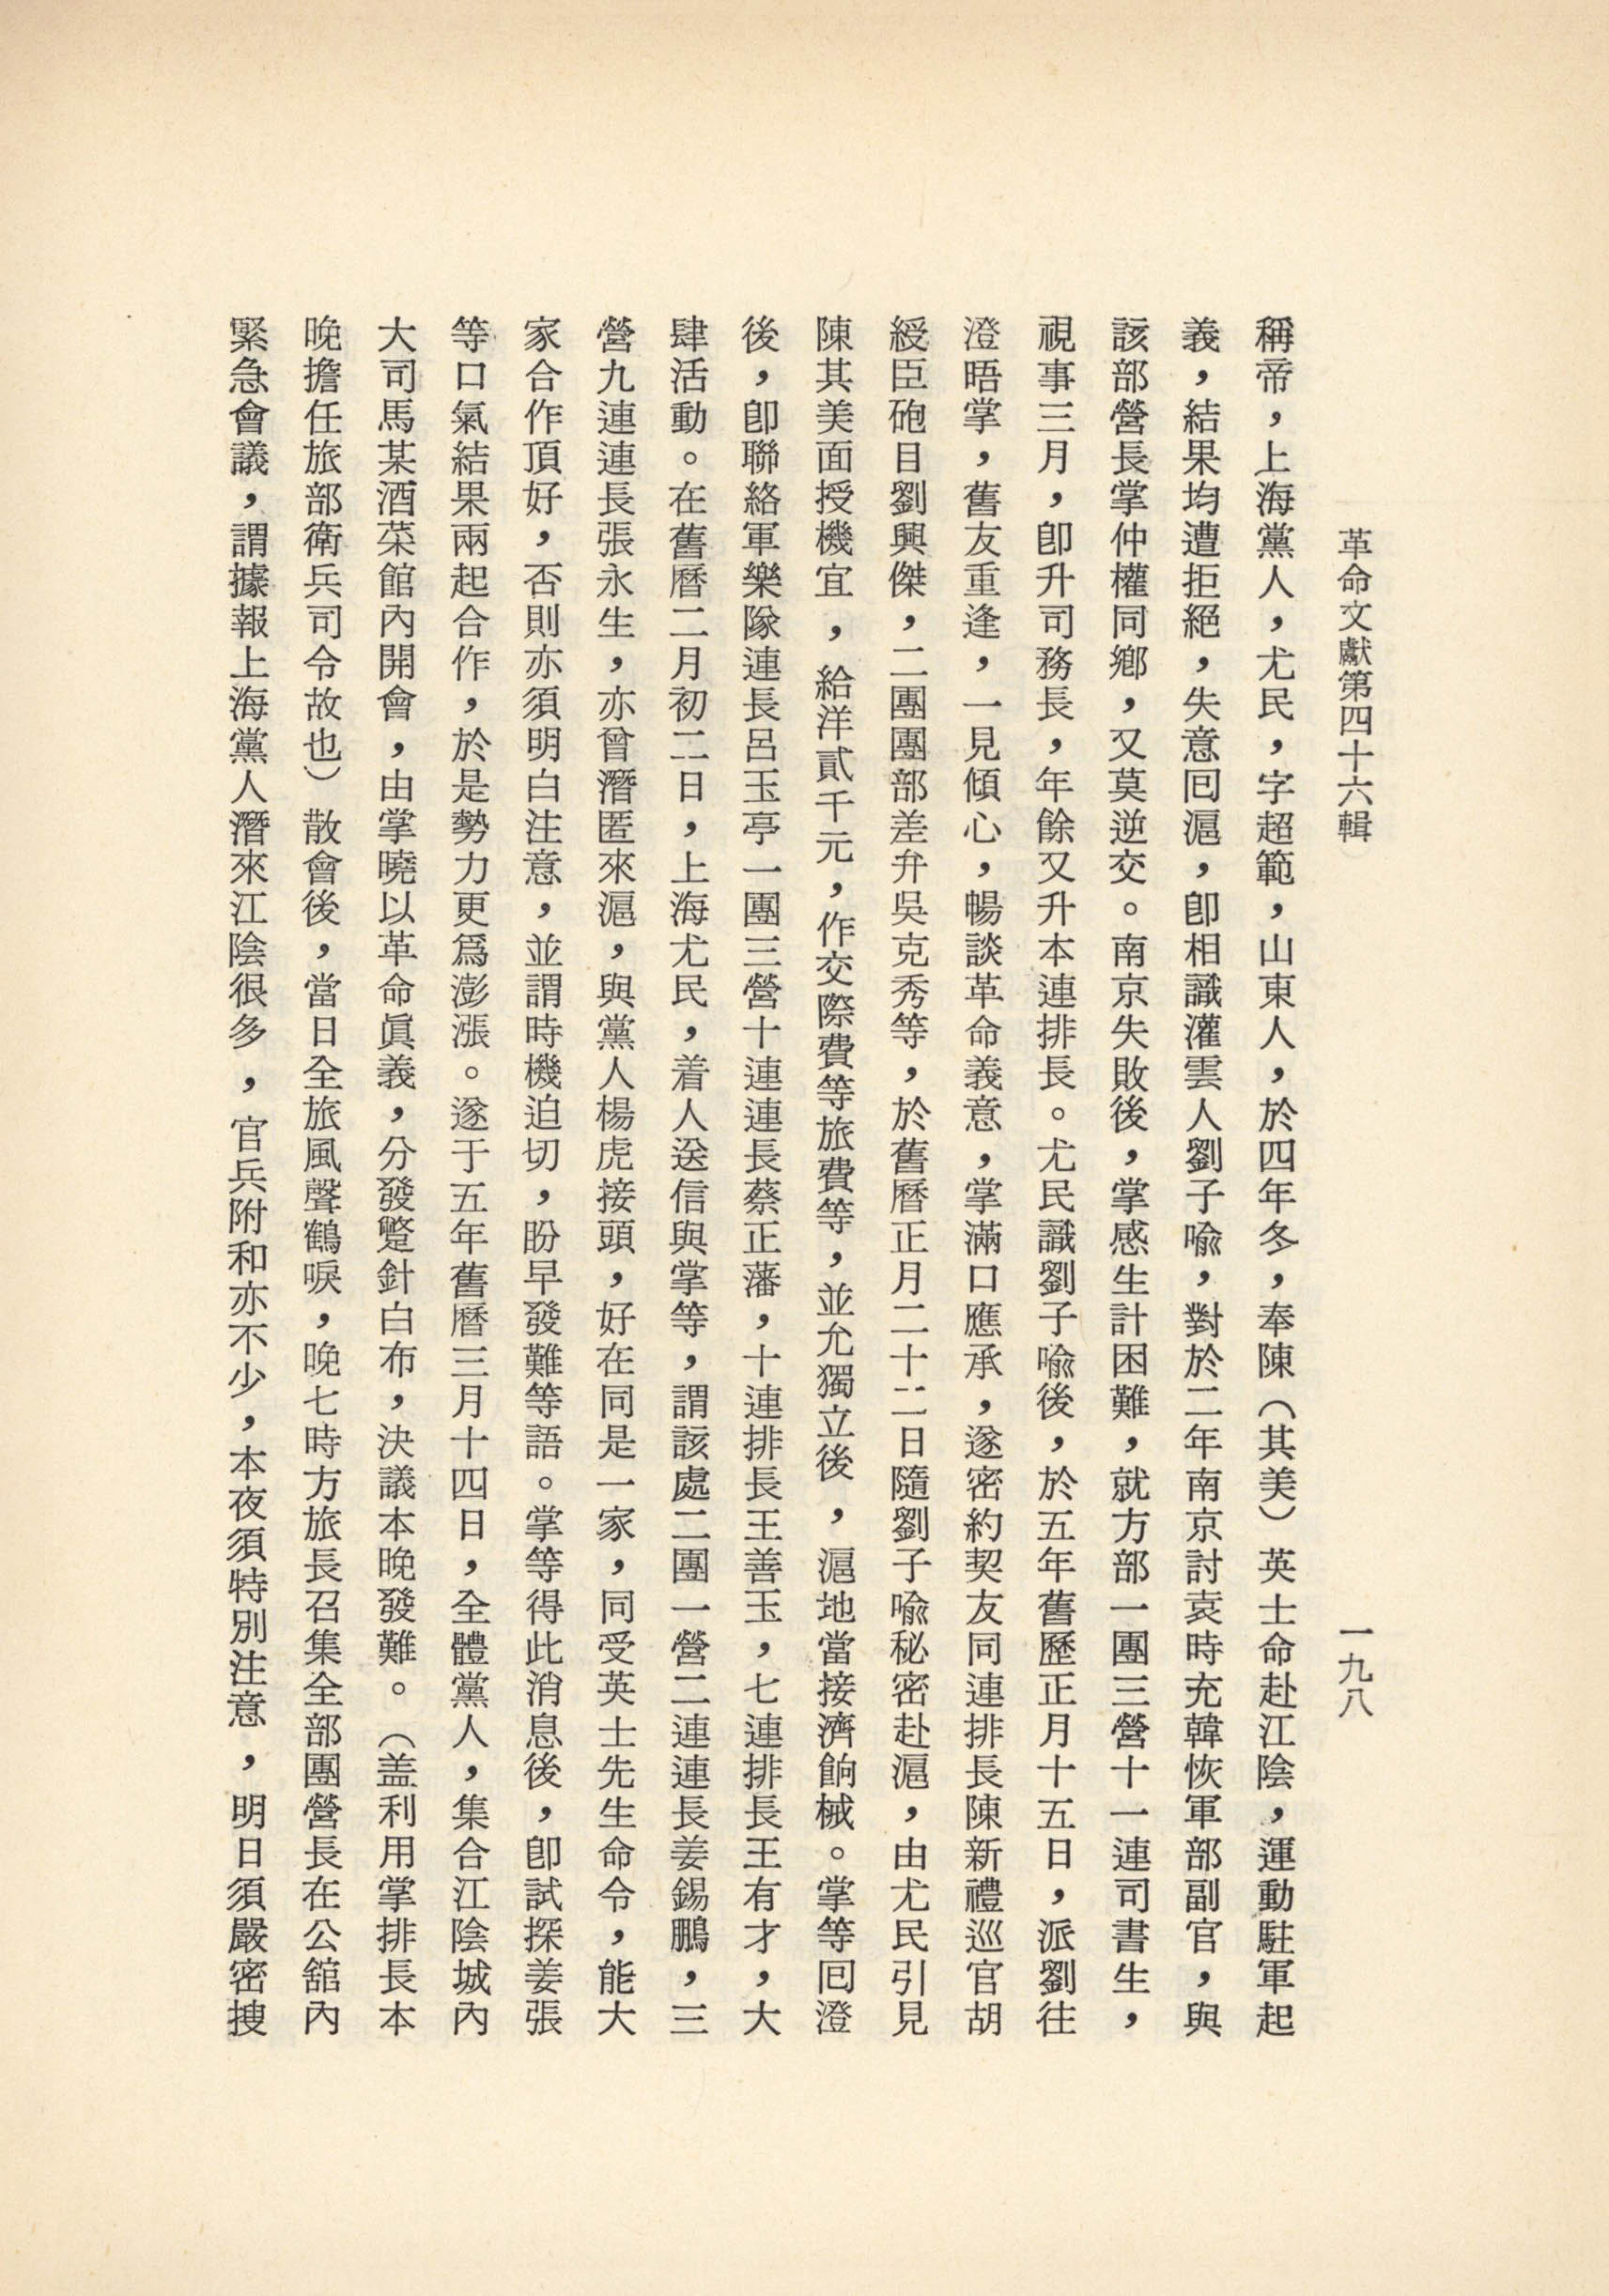 革命文獻第四十六輯
一九八
稱帝，上海黨人，尤民，字超範，山東人，於四年冬，奉陳（其美）英士命赴江陰，運動駐軍起
義，結果均遭拒絕，失意囘滬，卽相識灌雲人劉子喩，對於二年南京討袁時充韓恢軍部副官，與
該部營長掌仲權同鄉，又莫逆交。南京失敗後，掌感生計困難，就方部一團三營十一連司書生，
視事三月，卽升司務長，年餘又升本連排長。尤民識劉子喩後，於五年舊歷正月十五日，派劉往
澄晤掌，舊友重逢，一見傾心，暢談革命義意，掌滿口應承，遂密約契友同連排長陳新禮巡官胡
綬臣砲目劉興傑，二團團部差弁吳克秀等，於舊曆正月二十二日隨劉子喩秘密赴滬，由尤民引見
陳其美面授機宜，給洋貳千元，作交際費等旅費等，並允獨立後，滬地當接濟餉械。掌等囘澄
後，卽聯絡軍樂隊連長呂玉亭一團三營十連連長蔡正藩，十連排長王善玉，七連排長王有才，大
肆活動。在舊曆二月初二日，上海尤民，着人送信與掌等，謂該處二團一營二連連長姜錫鵬，三
營九連連長張永生，亦曾潛匿來滬，與黨人楊虎接頭，好在同是一家，同受英士先生命令，能大
家合作頂好，否則亦須明白注意，並謂時機迫切，盼早發難等語。掌等得此消息後，卽試探姜張
等口氣結果兩起合作，於是勢力更爲澎漲。遂于五年舊曆三月十四日，全體黨人，集合江陰城內
大司馬某酒菜館內開會，由掌曉以革命眞義，分發蹩針白布，決議本晚發難。（盖利用掌排長本
晚擔任旅部衛兵司令故也）散會後，當日全旅風聲鶴唳，晚七時方旅長召集全部團營長在公舘內
緊急會議，謂據報上海黨人潛來江陰很多，官兵附和亦不少，本夜須特別注意，明日須嚴密搜